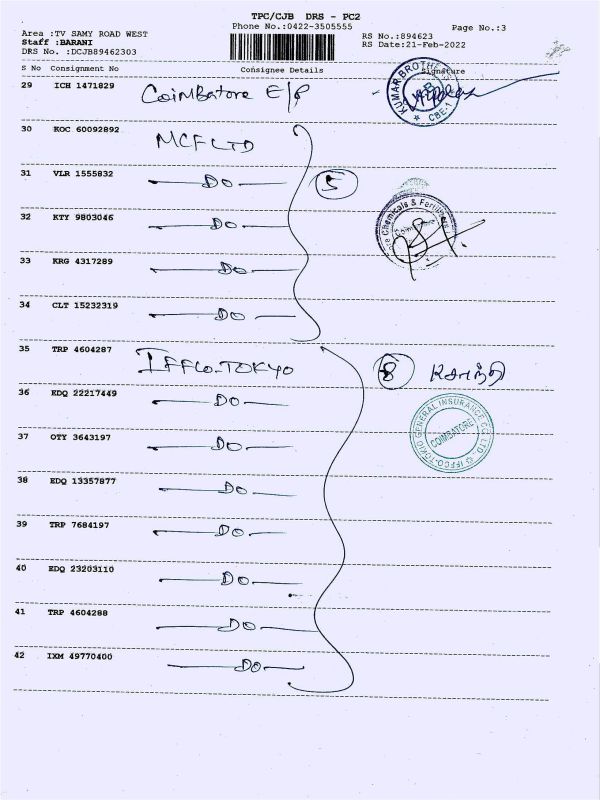 TPC/CJB DRS - PC2
Phone No.:0422-3505555
Page No.:3
Area :TV SAMY ROAD WEST
Staff :BARANI
DRS No. :DCJB89462303
RS No.:894623
RS Date:21-Feb-2022
S No Consignment No Consignee Details Signature
29 ICH 1471829 Coimbatore E/P
KUMAR BROTHE
CBE-1
30 KOC 60092892 MCF LTD
31 VLR 1555832 DO 5
32 KTY 9803046 DO
Chemicals & Fertilizers
33 KRG 4317289 DO
34 CLT 15232319 DO
35 TRP 4604287 IFFCO-TOKYO 8 சாந்தி
36 EDQ 22217449 DO
IFFCO-TOKIO GENERAL INSURANCE CO LTD.
COIMBATORE
37 OTY 3643197 DO
38 EDQ 13357877 DO
39 TRP 7684197 DO
40 EDQ 23203110 DO
41 TRP 4604288 DO
42 IXM 49770400 DO